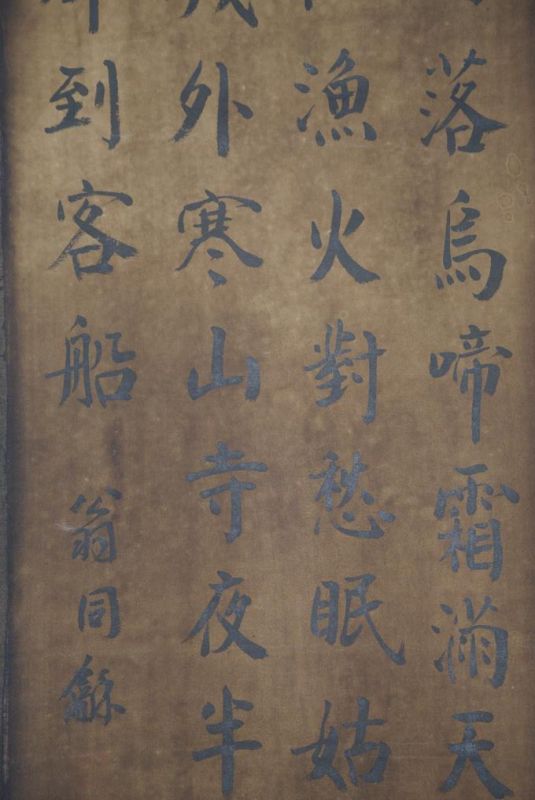 落烏啼霜滿天
漁火對愁眠姑
外寒山寺夜半
到客船
翁同龢